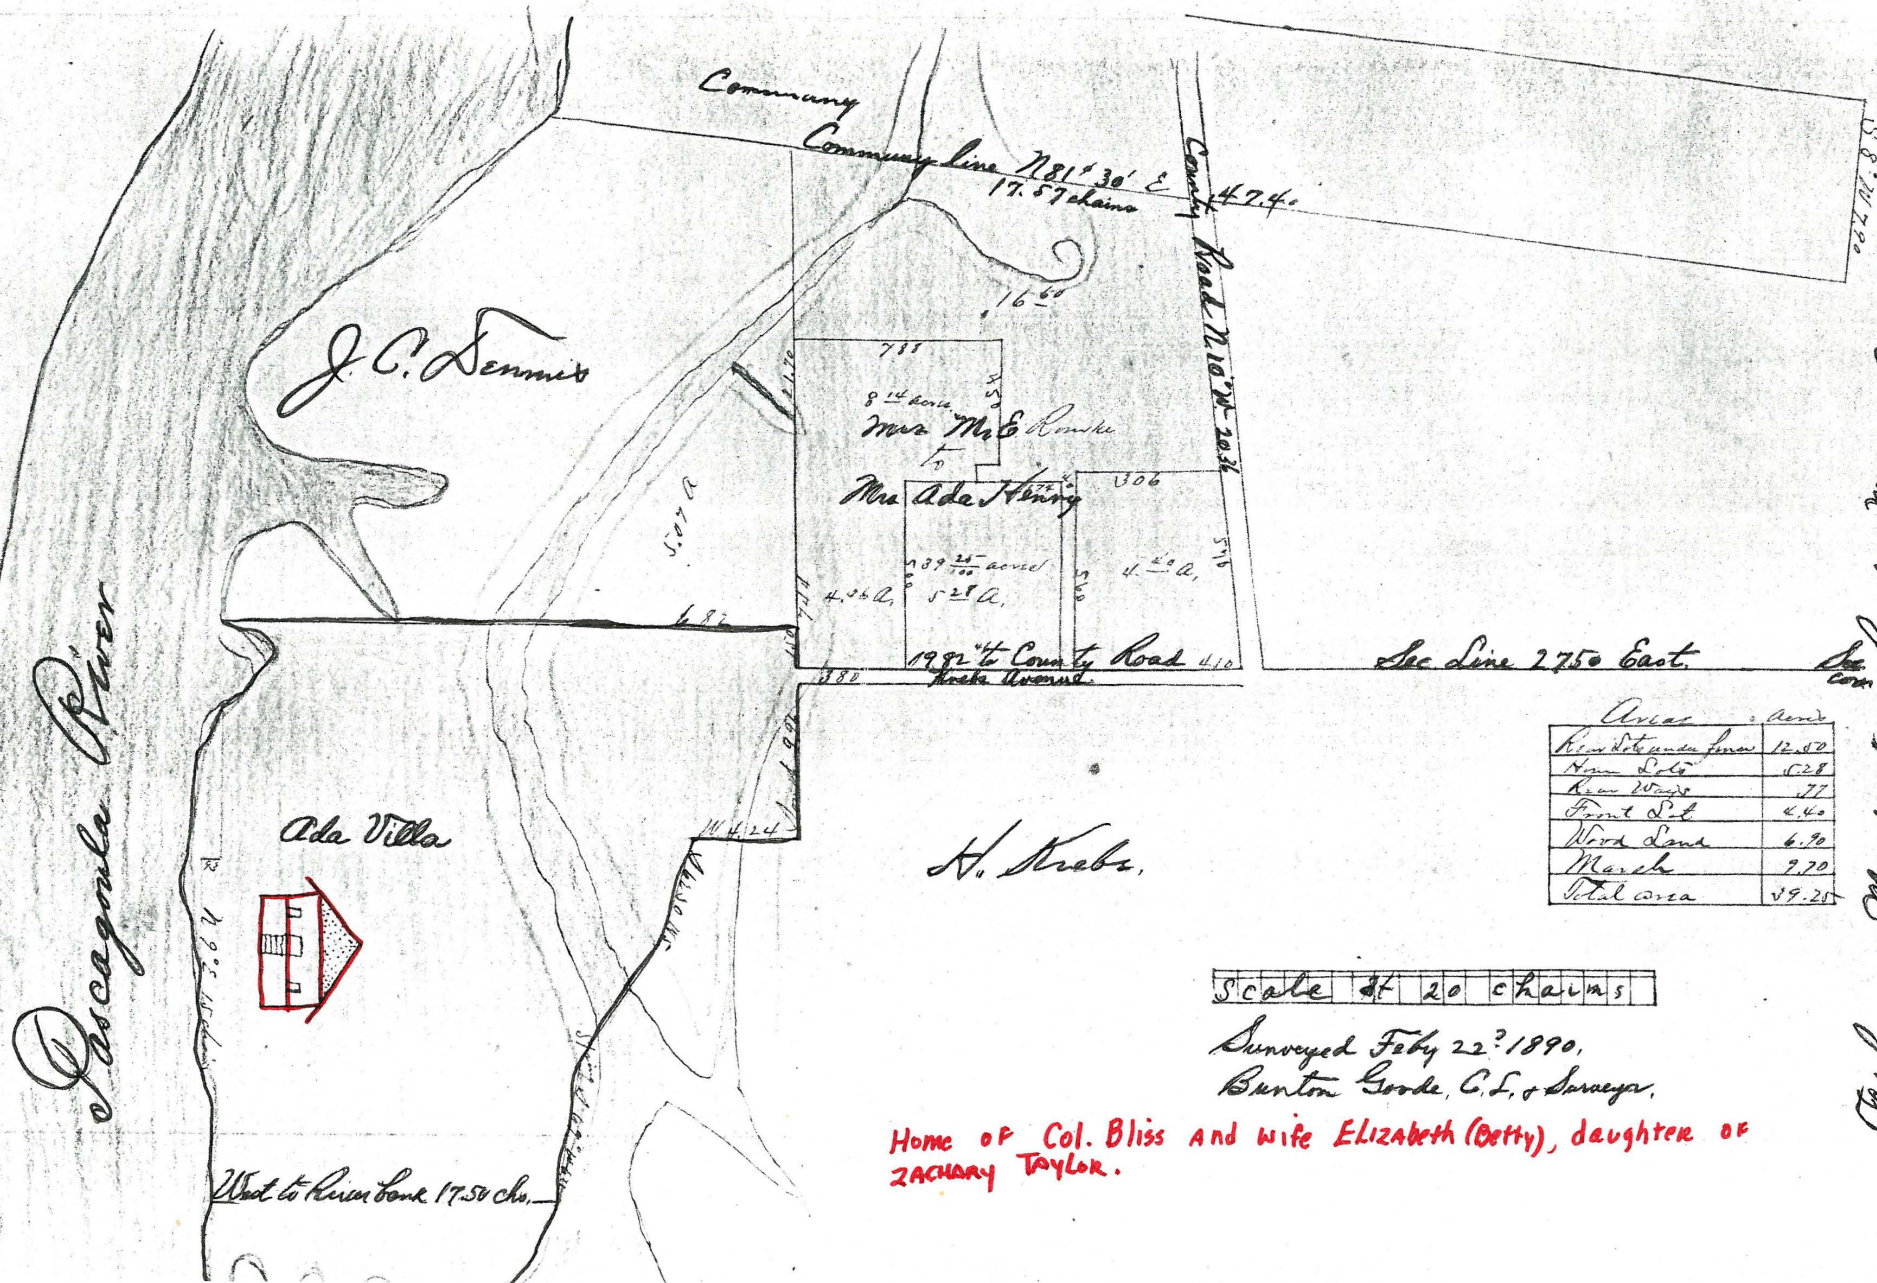 Pascagoula River
J. C. Dennis
Community line N 81° 30' E
17.57 chains
47.40
County Road N. 10° W. 20.36
S 8° W 7.90
16 60
788
8 14 acres
Mrs M. E Rourke
to
Mrs Ada Henry
350
306
39 25/100 acres
4.46 A.
5 28 A.
4. 40 A.
5.07 A
500
560
540
744
6.82
1982 to County Road 410
380
Krebs Avenue
Sec Line 2750 East.
Sec
corn
Ada Villa
W 4.24
H. Krebs.
West to River bank 17.50 chs.
Areas Acres
12.50
Home Lots 5.28
.77
Front Lot 4.40
Wood Land 6.90
Marsh 9.70
Total area 39.25
Scale at 20 chains
Surveyed Feby 22d 1890,
Bunton Goode, C.E. & Surveyor.
Home of Col. Bliss and wife Elizabeth (Betty), daughter of
Zachary Taylor.